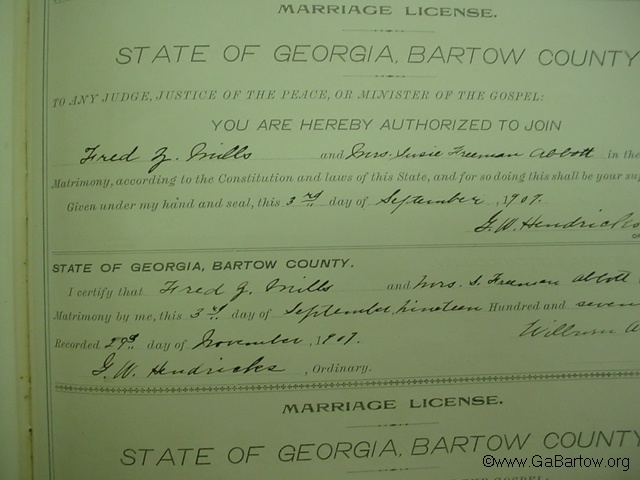 MARRIAGE LICENSE.
STATE OF GEORGIA, BARTOW COUNTY
TO ANY JUDGE, JUSTICE OF THE PEACE, OR MINISTER OF THE GOSPEL:
YOU ARE HEREBY AUTHORIZED TO JOIN
Fred Mills and Mrs. Susie Freeman Abbott in the
Matrimony, according to the Constitution and laws of this State, and for so doing this shall be your
Given under my hand and seal, this 3rd day of September, 1907.
G. W. Hendricks
STATE OF GEORGIA, BARTOW COUNTY.
I certify that Fred Mills and Mrs. S. Freeman Abbott
Matrimony by me, this 3rd day of September, nineteen Hundred and seven
Recorded 29th day of November, 1907. Wilburn
G. W. Hendricks, Ordinary.
MARRIAGE LICENSE.
STATE OF GEORGIA, BARTOW COUNTY
©www.GaBartow.org